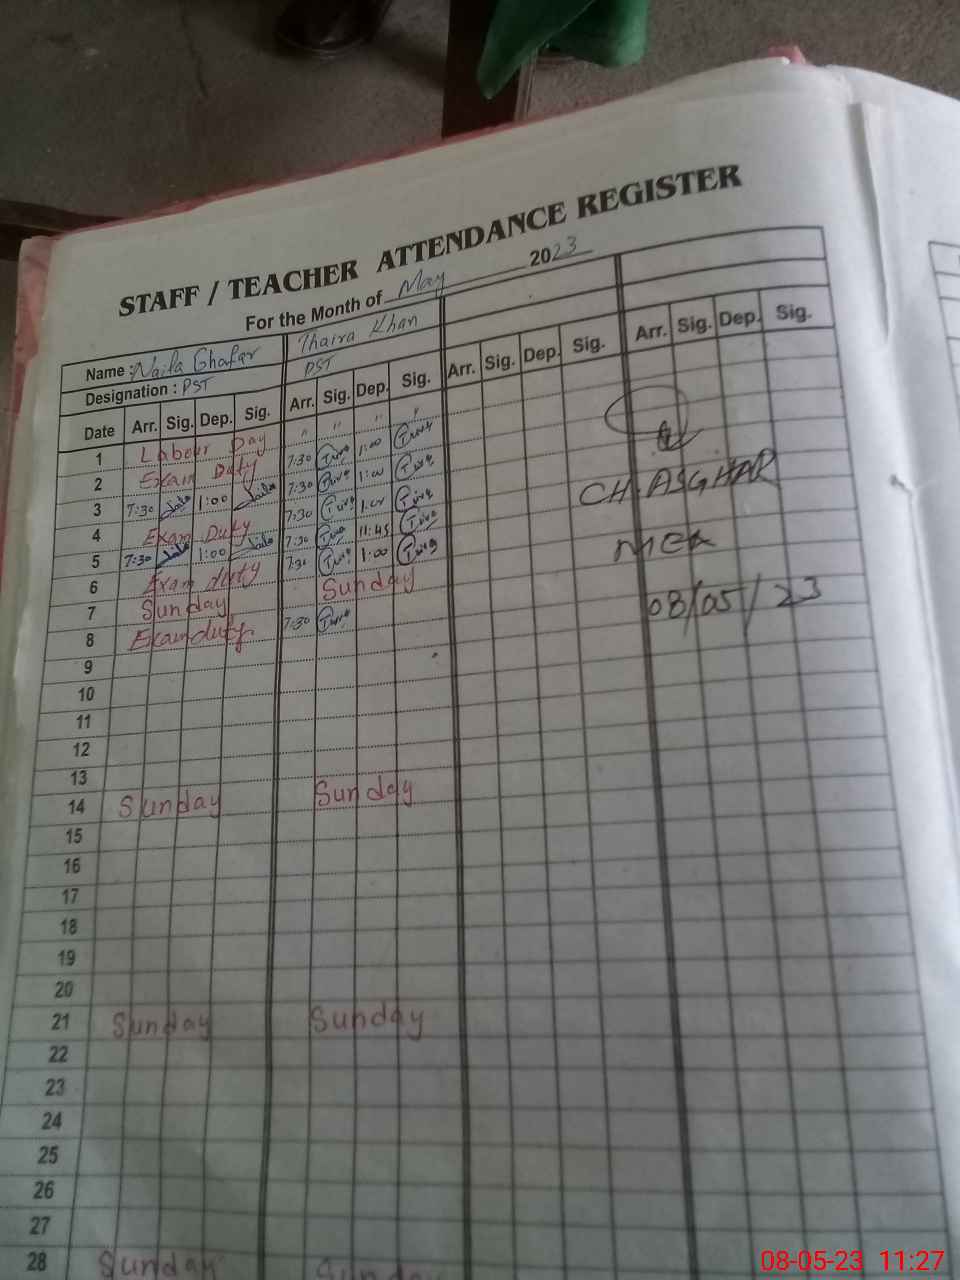 STAFF / TEACHER ATTENDANCE REGISTER
For the Month of May 2023
Name : Naila Ghafar Thaira Khan
Designation : PST PST
Date Arr. Sig. Dep. Sig. Arr. Sig. Dep. Sig. Arr. Sig. Dep. Sig. Arr. Sig. Dep. Sig.
1 Labour Day " " " "
2 Exam Duty 7:30 1:00
3 7:30 1:00 7:30 1:00
4 Exam Duty 7:30 1:00
5 7:30 1:00 7:30 11:45
6 Exam duty 7:30 1:00
7 Sunday Sunday
8 Exam duty 7:30
CH. ASGHAR
MEA
08/05/23
9
10
11
12
13
14 Sunday Sunday
15
16
17
18
19
20
21 Sunday Sunday
22
23
24
25
26
27
28 Sunday Sunday
08-05-23 11:27